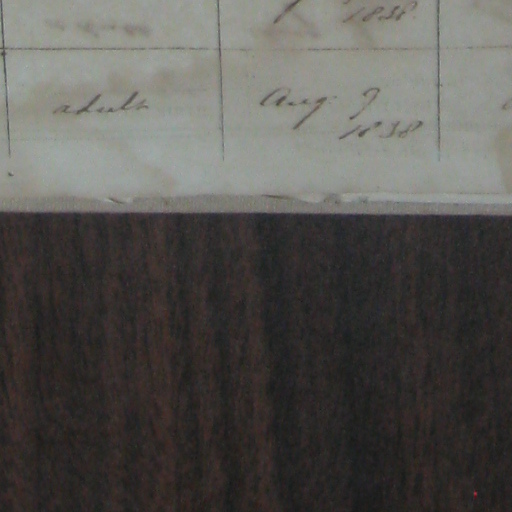 1838.
adult Aug 9
1838